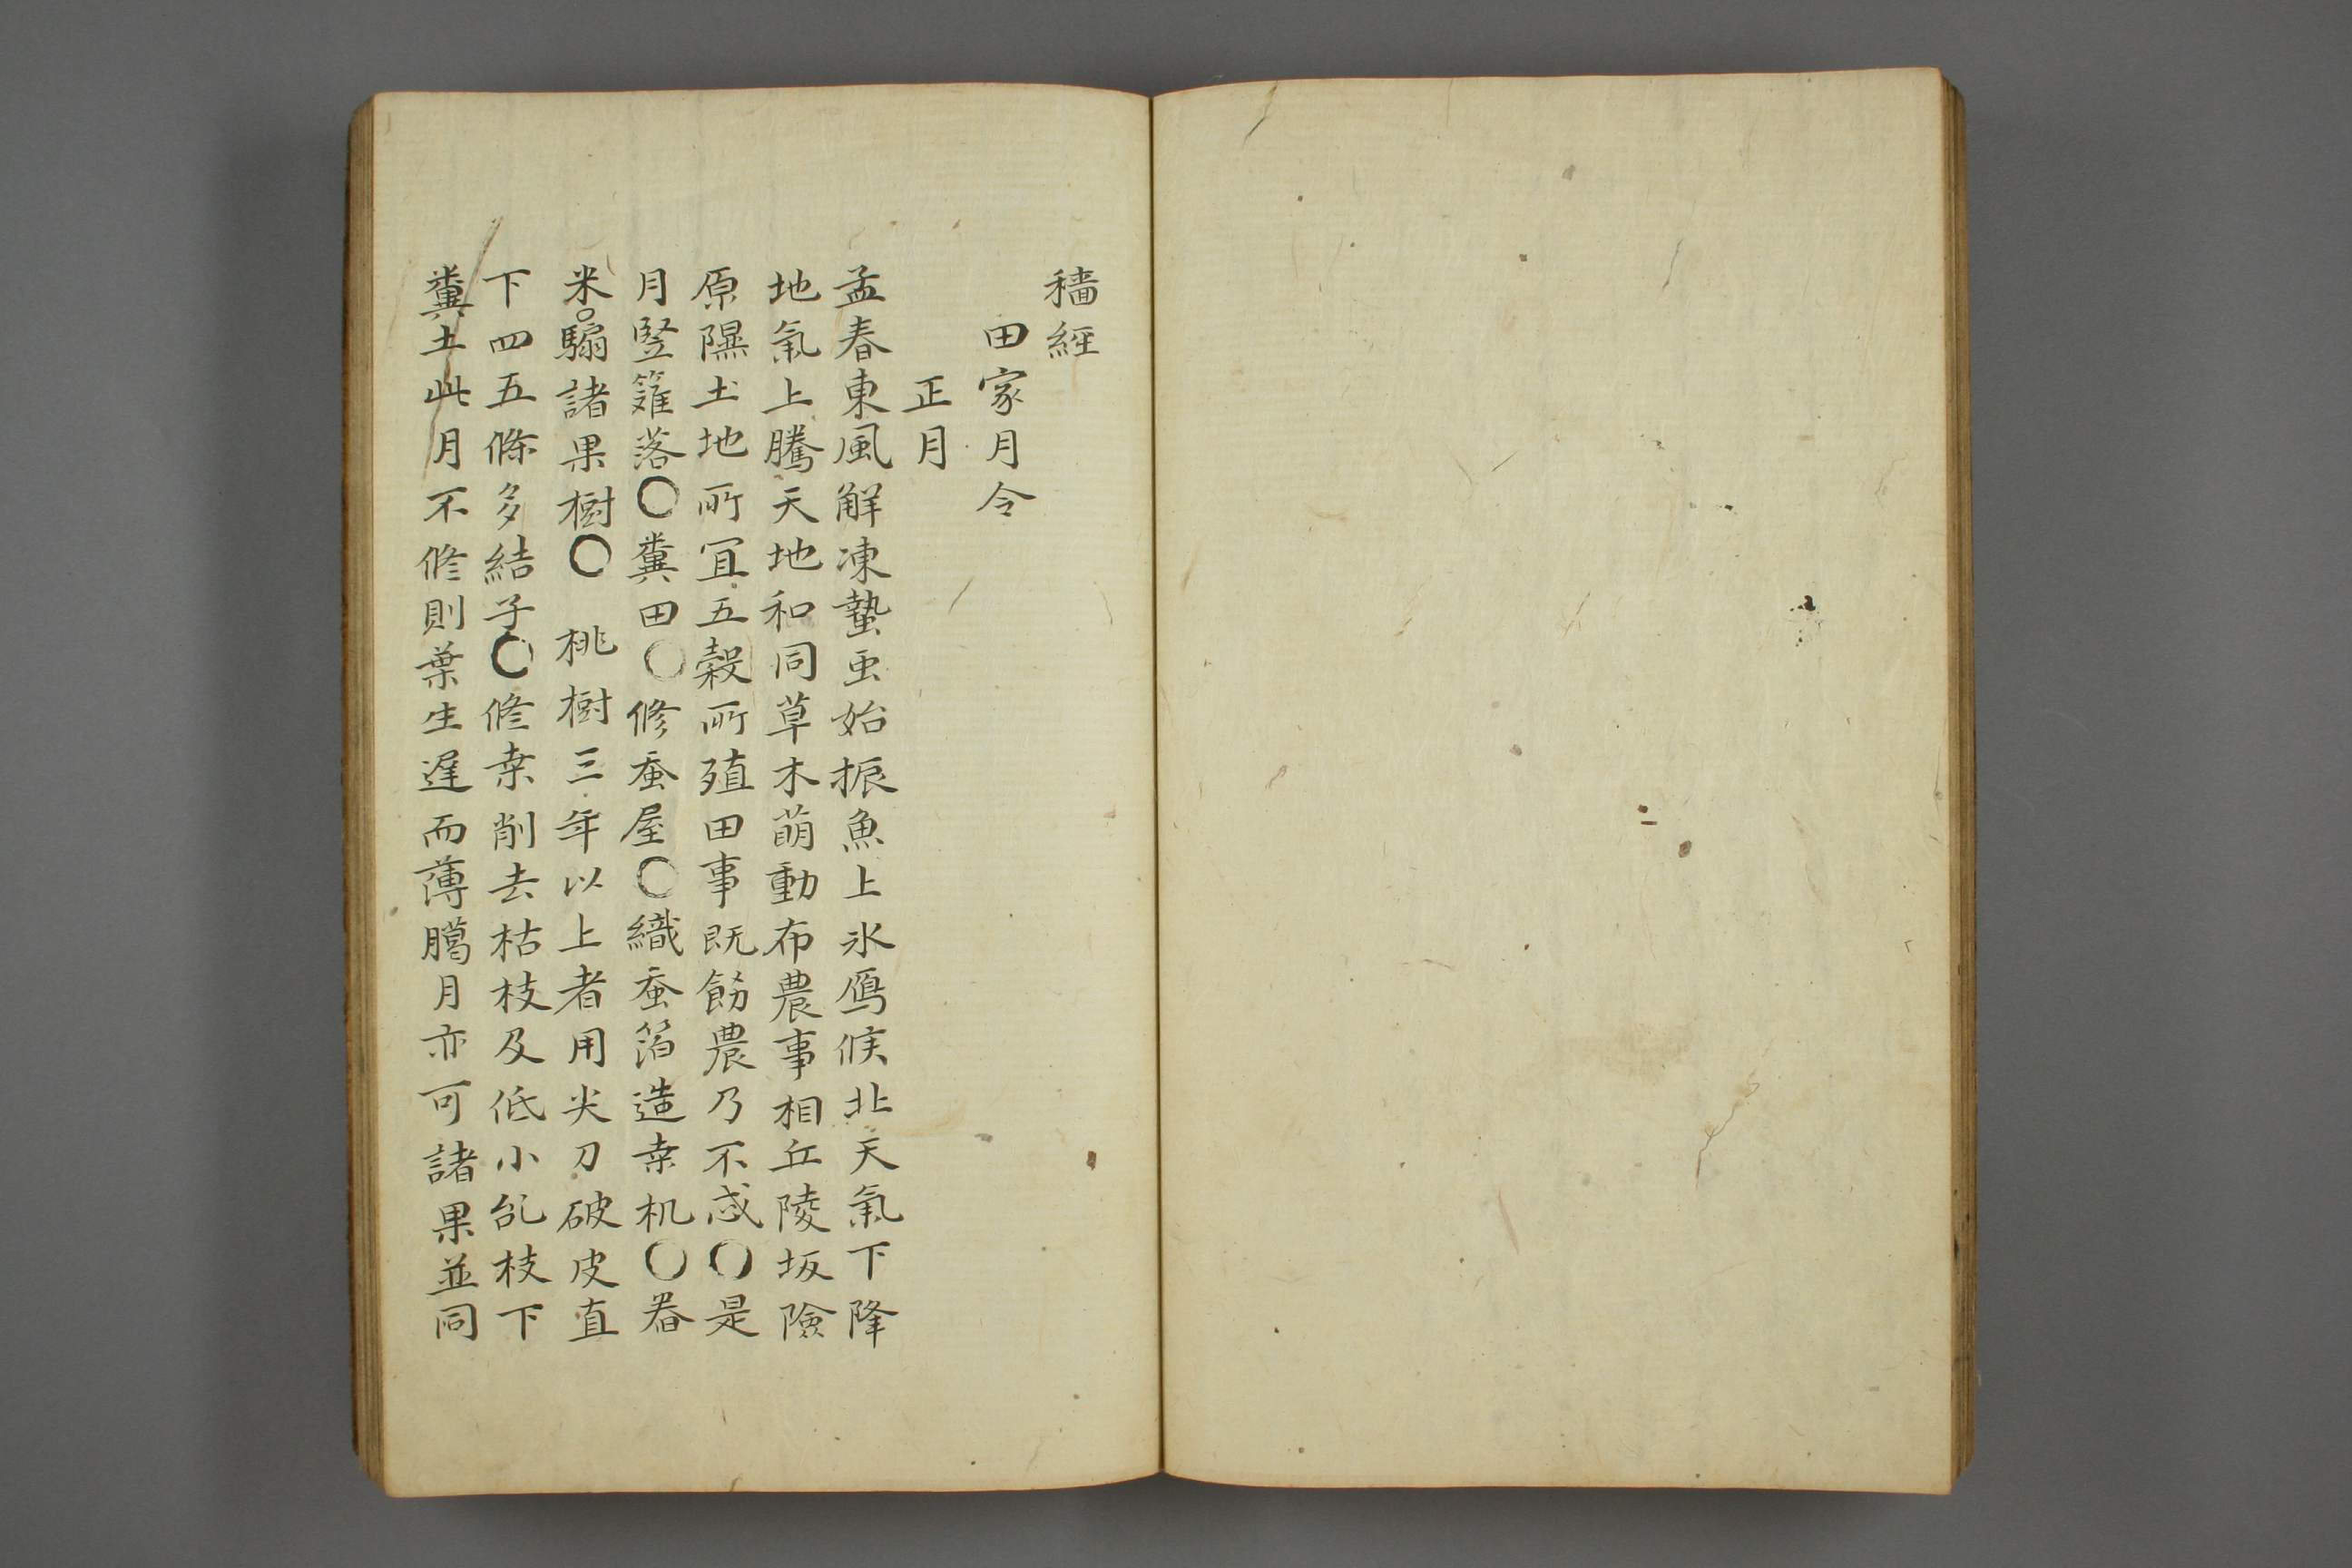 穡經
田家月令
正月
孟春東風解凍蟄虫始振魚上氷鴈候北天氣下降
地氣上騰天地和同草木萌動布農事相丘陵坂險
原隰土地所宜五穀所殖田事既飭農乃不惑〇是
月竪籬落〇糞田〇修蚕屋〇織蚕箔造桒机〇舂
米〇騸諸果樹〇桃樹三年以上者用尖刀破皮直
下四五條多結子〇修桒削去枯枝及低小乱枝下
糞土此月不修則葉生遅而薄臈月亦可諸果並同